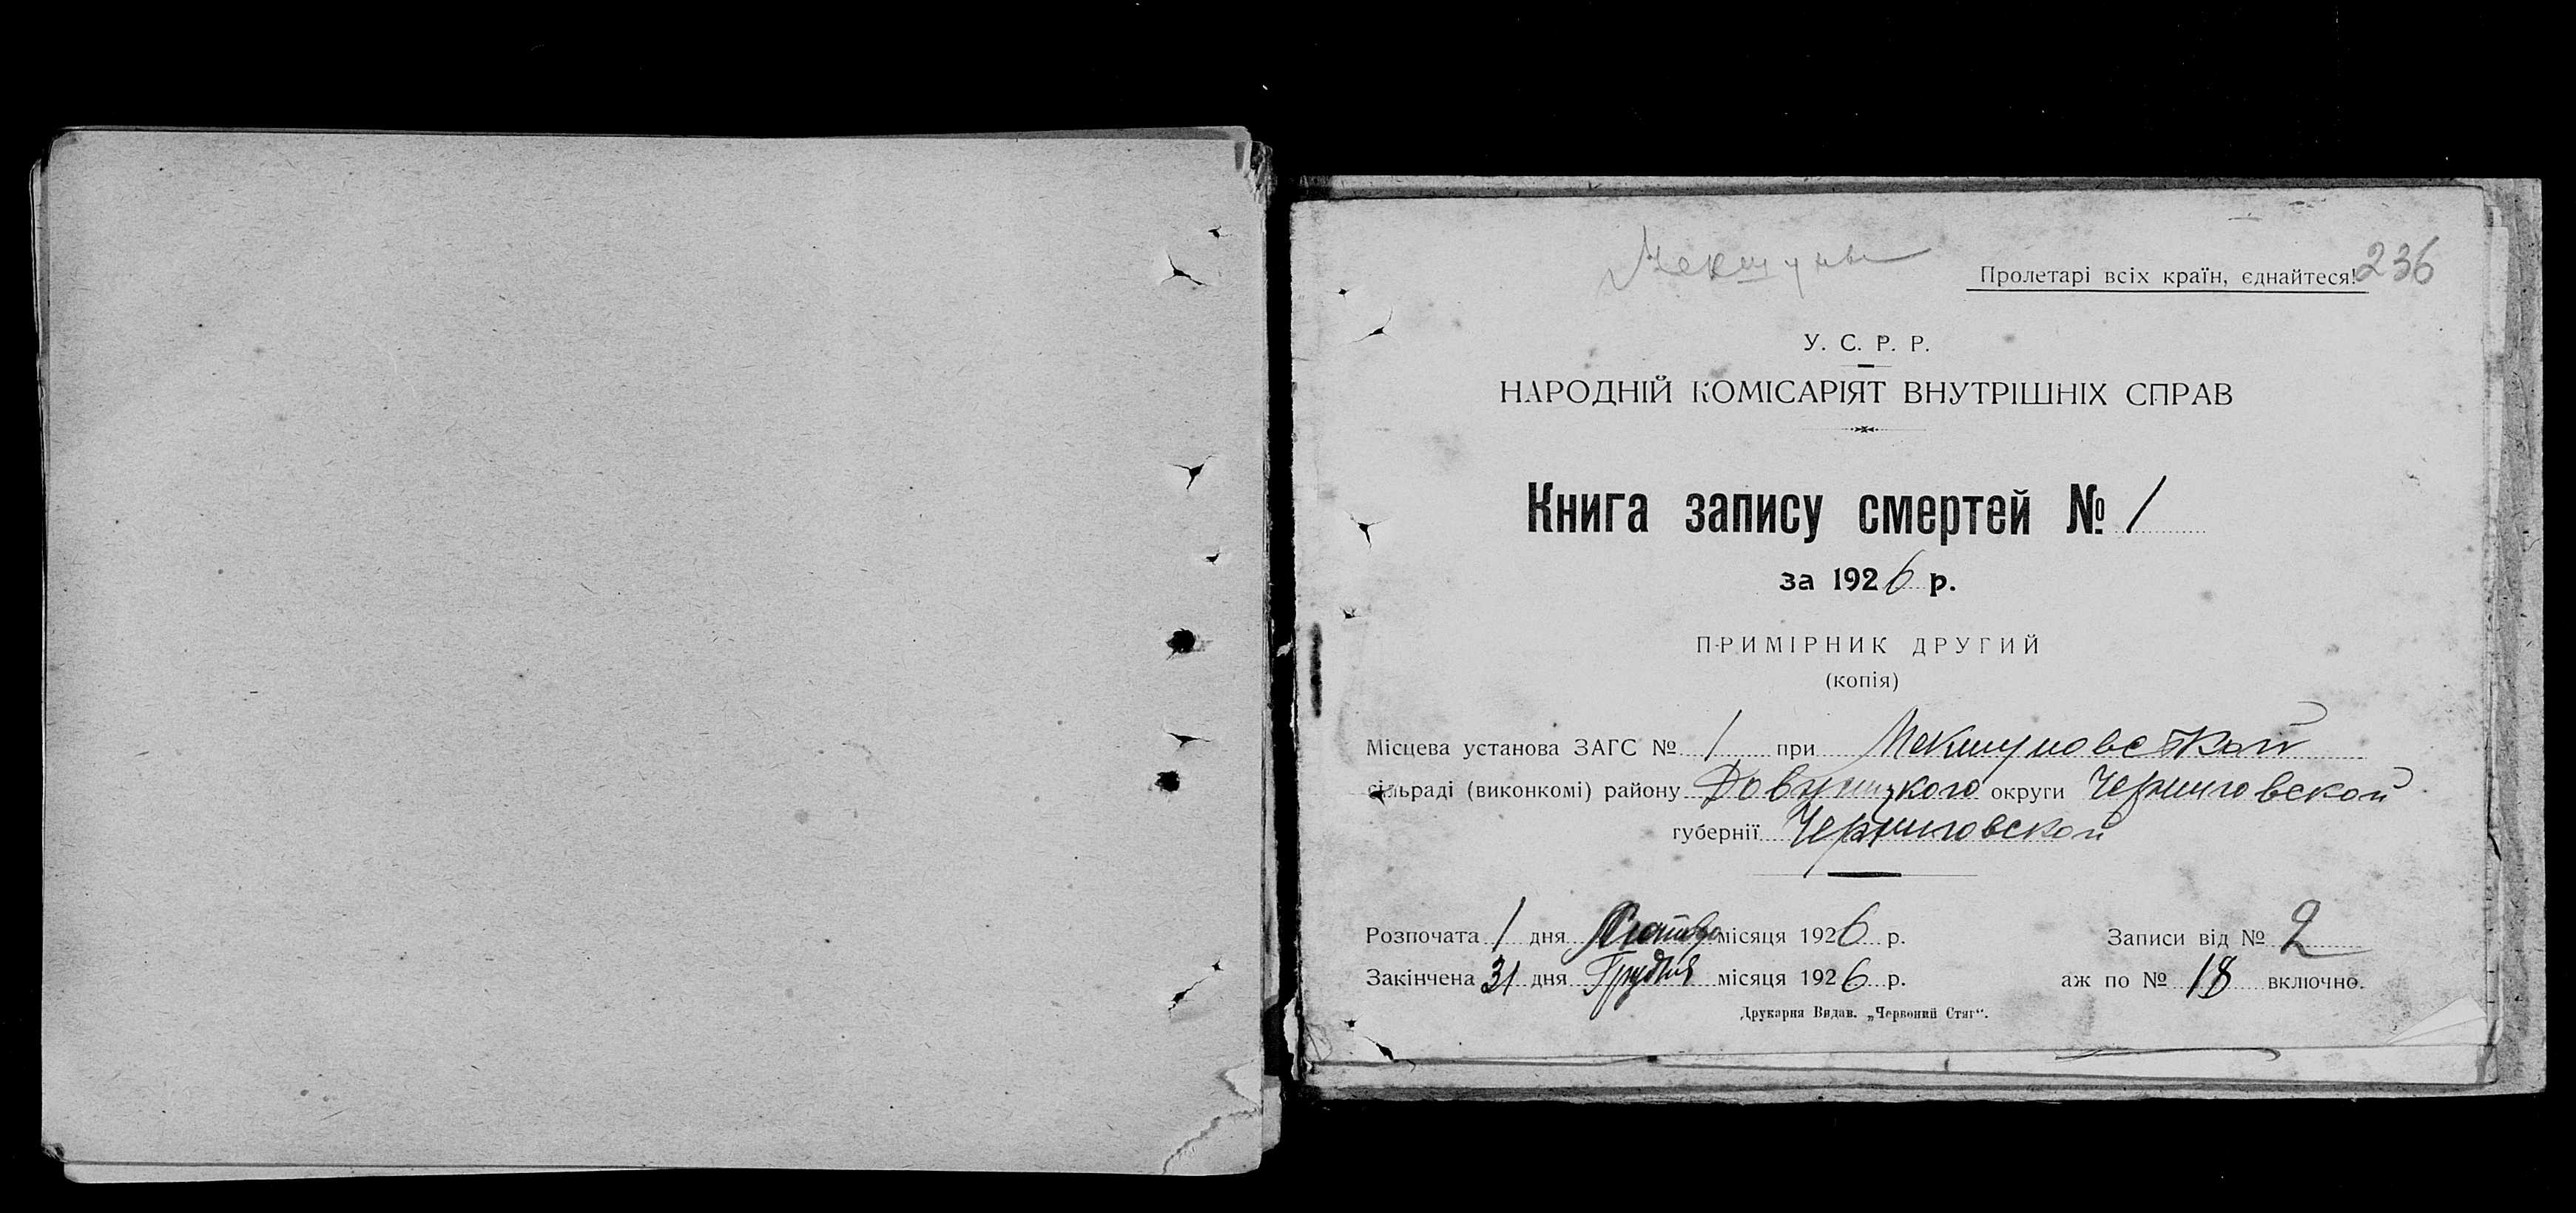 Мекшуны
Пролетарі всіх країн, єднайтеся!
236
У. С. Р. Р.
НАРОДНІЙ КОМІСАРІЯТ ВНУТРІШНІХ СПРАВ
Книга запису смертей № 1
за 1926 р.
ПРИМІРНИК ДРУГИЙ
(копія)
Місцева установа ЗАГС № 1 при Мекшуновской
сільраді (виконкомі) району округи Черниговской
губернії Черниговской
Розпочата 1 дня місяця 1926 р. Записи від № 2
Закінчена 31 дня Грудня місяця 1926 р. аж по № 18 включно.
Друкарня Видав. „Червоний Стяг“.